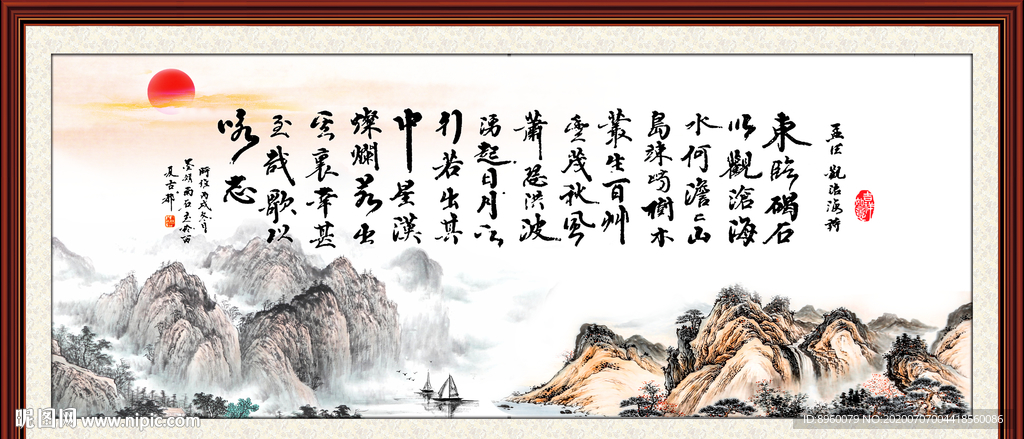 孟德觀滄海詩
東臨碣石
以觀滄海
水何澹々山
島竦峙樹木
叢生百艸
豐茂秋風
蕭瑟洪波
湧起日月之
行若出其
中星漢
燦爛若出
其裏幸甚
至哉歌以
咏志
時在丙戌冬月
夏古都
昵图网 www.nipic.com
ID:8950079 NO:20200707004418560086